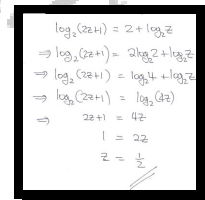 log₂(2z+1) = 2 + log₂z
⇒ log₂(2z+1) = 2log₂2 + log₂z
⇒ log₂(2z+1) = log₂4 + log₂z
⇒ log₂(2z+1) = log₂(4z)
⇒ 2z+1 = 4z
1 = 2z
z = 1/2